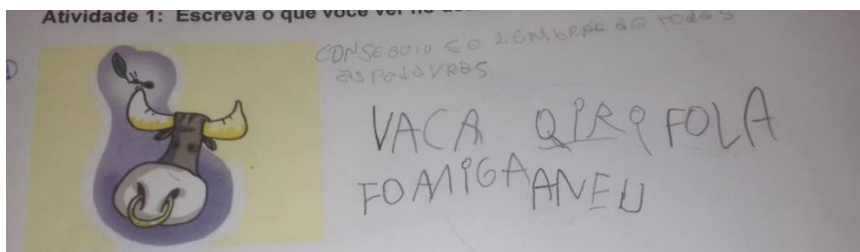 Atividade 1: Escreva o que você ver no
CONSEGUIU SO LEMBRAR DO TODAS
as PaLaVRas
VACA QIRIFOLA
FOMIGA ANEU